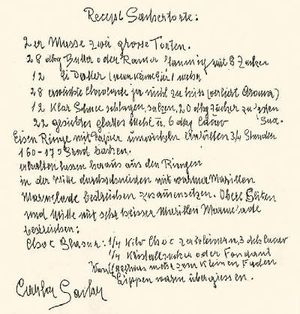 Recept Sachertorte:
2er Masse zwei große Torten.
28 dkg Butter oder Rama flaumig mit 8 Zucker
12 Ei Dotter
28 erweichte Chocolade ja nicht zu heiß (verliert Aroma)
12 Klar Schnee schlagen salzen, 20 dkg Zucker zu
22 gesiebtes glattes Mehl u. 6 dkg
Eisen Ringe mit Papier umwickeln einfüllen 3/4 Stunden
160-170 Grad backen.
erkalten lassen heraus aus den Ringen
in der Mitte durchschneiden mit warmer Marillen
Marmelade bestreichen zusammensetzen. Oben Seiten
und Mitte mit sehr heisser Marillen Marmelade
bestreichen:
Choc Glasur: 1/4 Kilo Choc zerkleinern, 3 dcl Wasser
1/4 Kristallzucker oder Fondant
kochen nicht zum kleinen Faden
Lippen warm übergiessen.
Carla Sacher